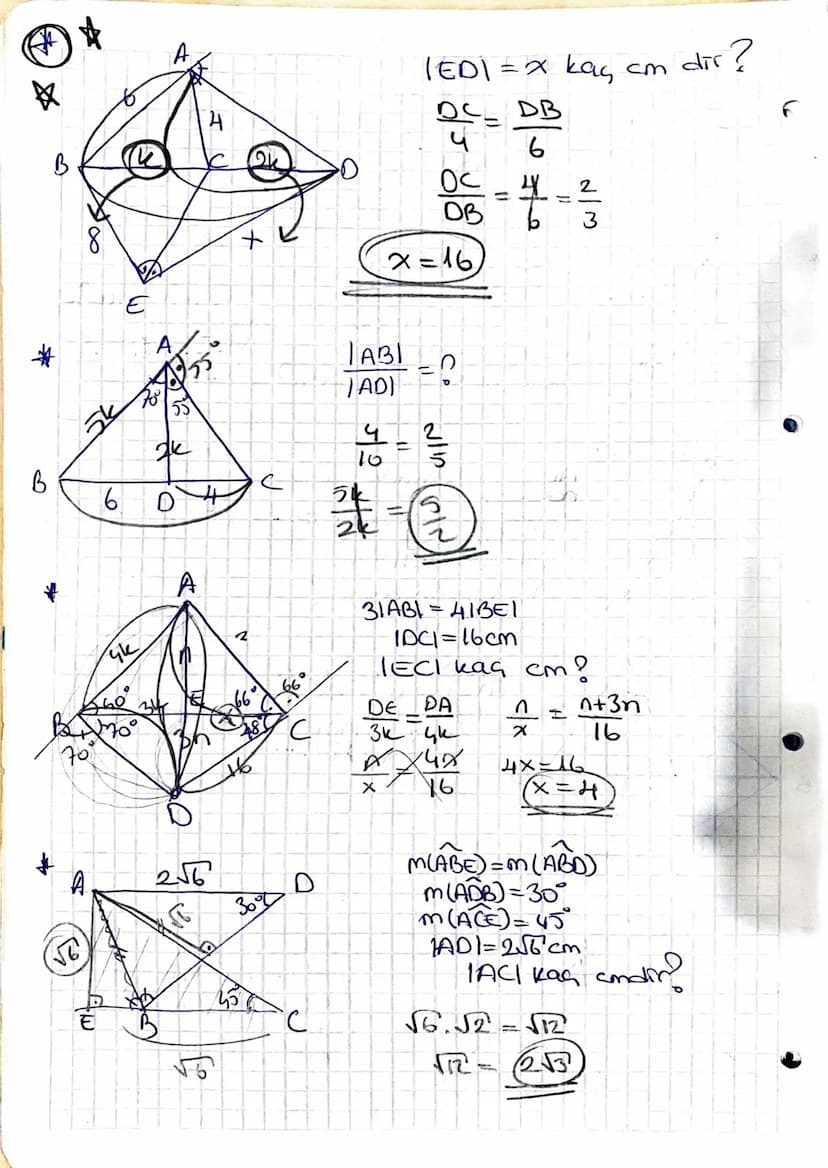 A
6
4
B
k
C
2k
D
8
x
E
|ED| = x kaç cm dir?
DC/4 = DB/6
DC/DB = 4/6 = 2/3
x = 16
A
55°
70°
55°
5k
2k
B
6
D
4
C
|AB|/|AD| = ?
4/10 = 2/5
5k/2k = 5/2
A
4k
n
2
60°
3k
E
66°
66°
B
x
C
70°
70°
3n
48°
16
D
3|AB| = 4|BE|
|DC| = 16cm
|EC| kaç cm?
DE/3k = DA/4k
n/x = n+3n/16
n/x = 4n/16
4x = 16
x = 4
A
2√6
D
30°
√6
√6
45°
E
B
C
√6
m(ABE) = m(ABD)
m(ADB) = 30°
m(ACE) = 45°
|AD| = 2√6 cm
|AC| kaç cmdir?
√6 . √2 = √12
√12 = 2√3